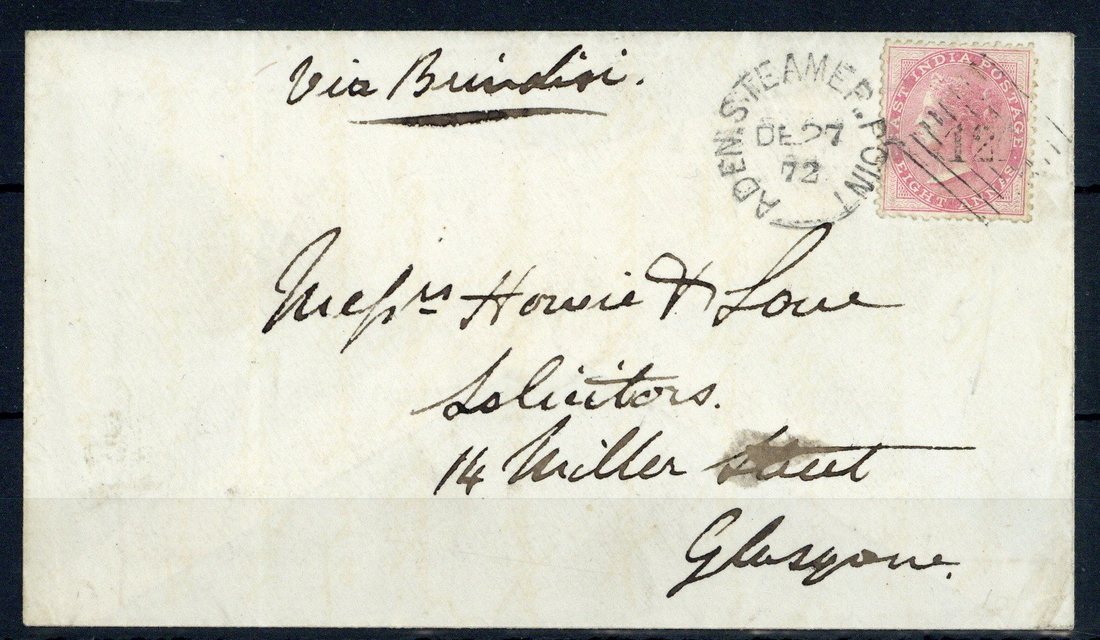 Via Brindisi.
ADEN. STEAMER-POINT
DE 27
72
EAST INDIA POSTAGE
EIGHT ANNAS
12
Messrs Howie & Love
Solicitors.
14 Miller Street
Glasgow.